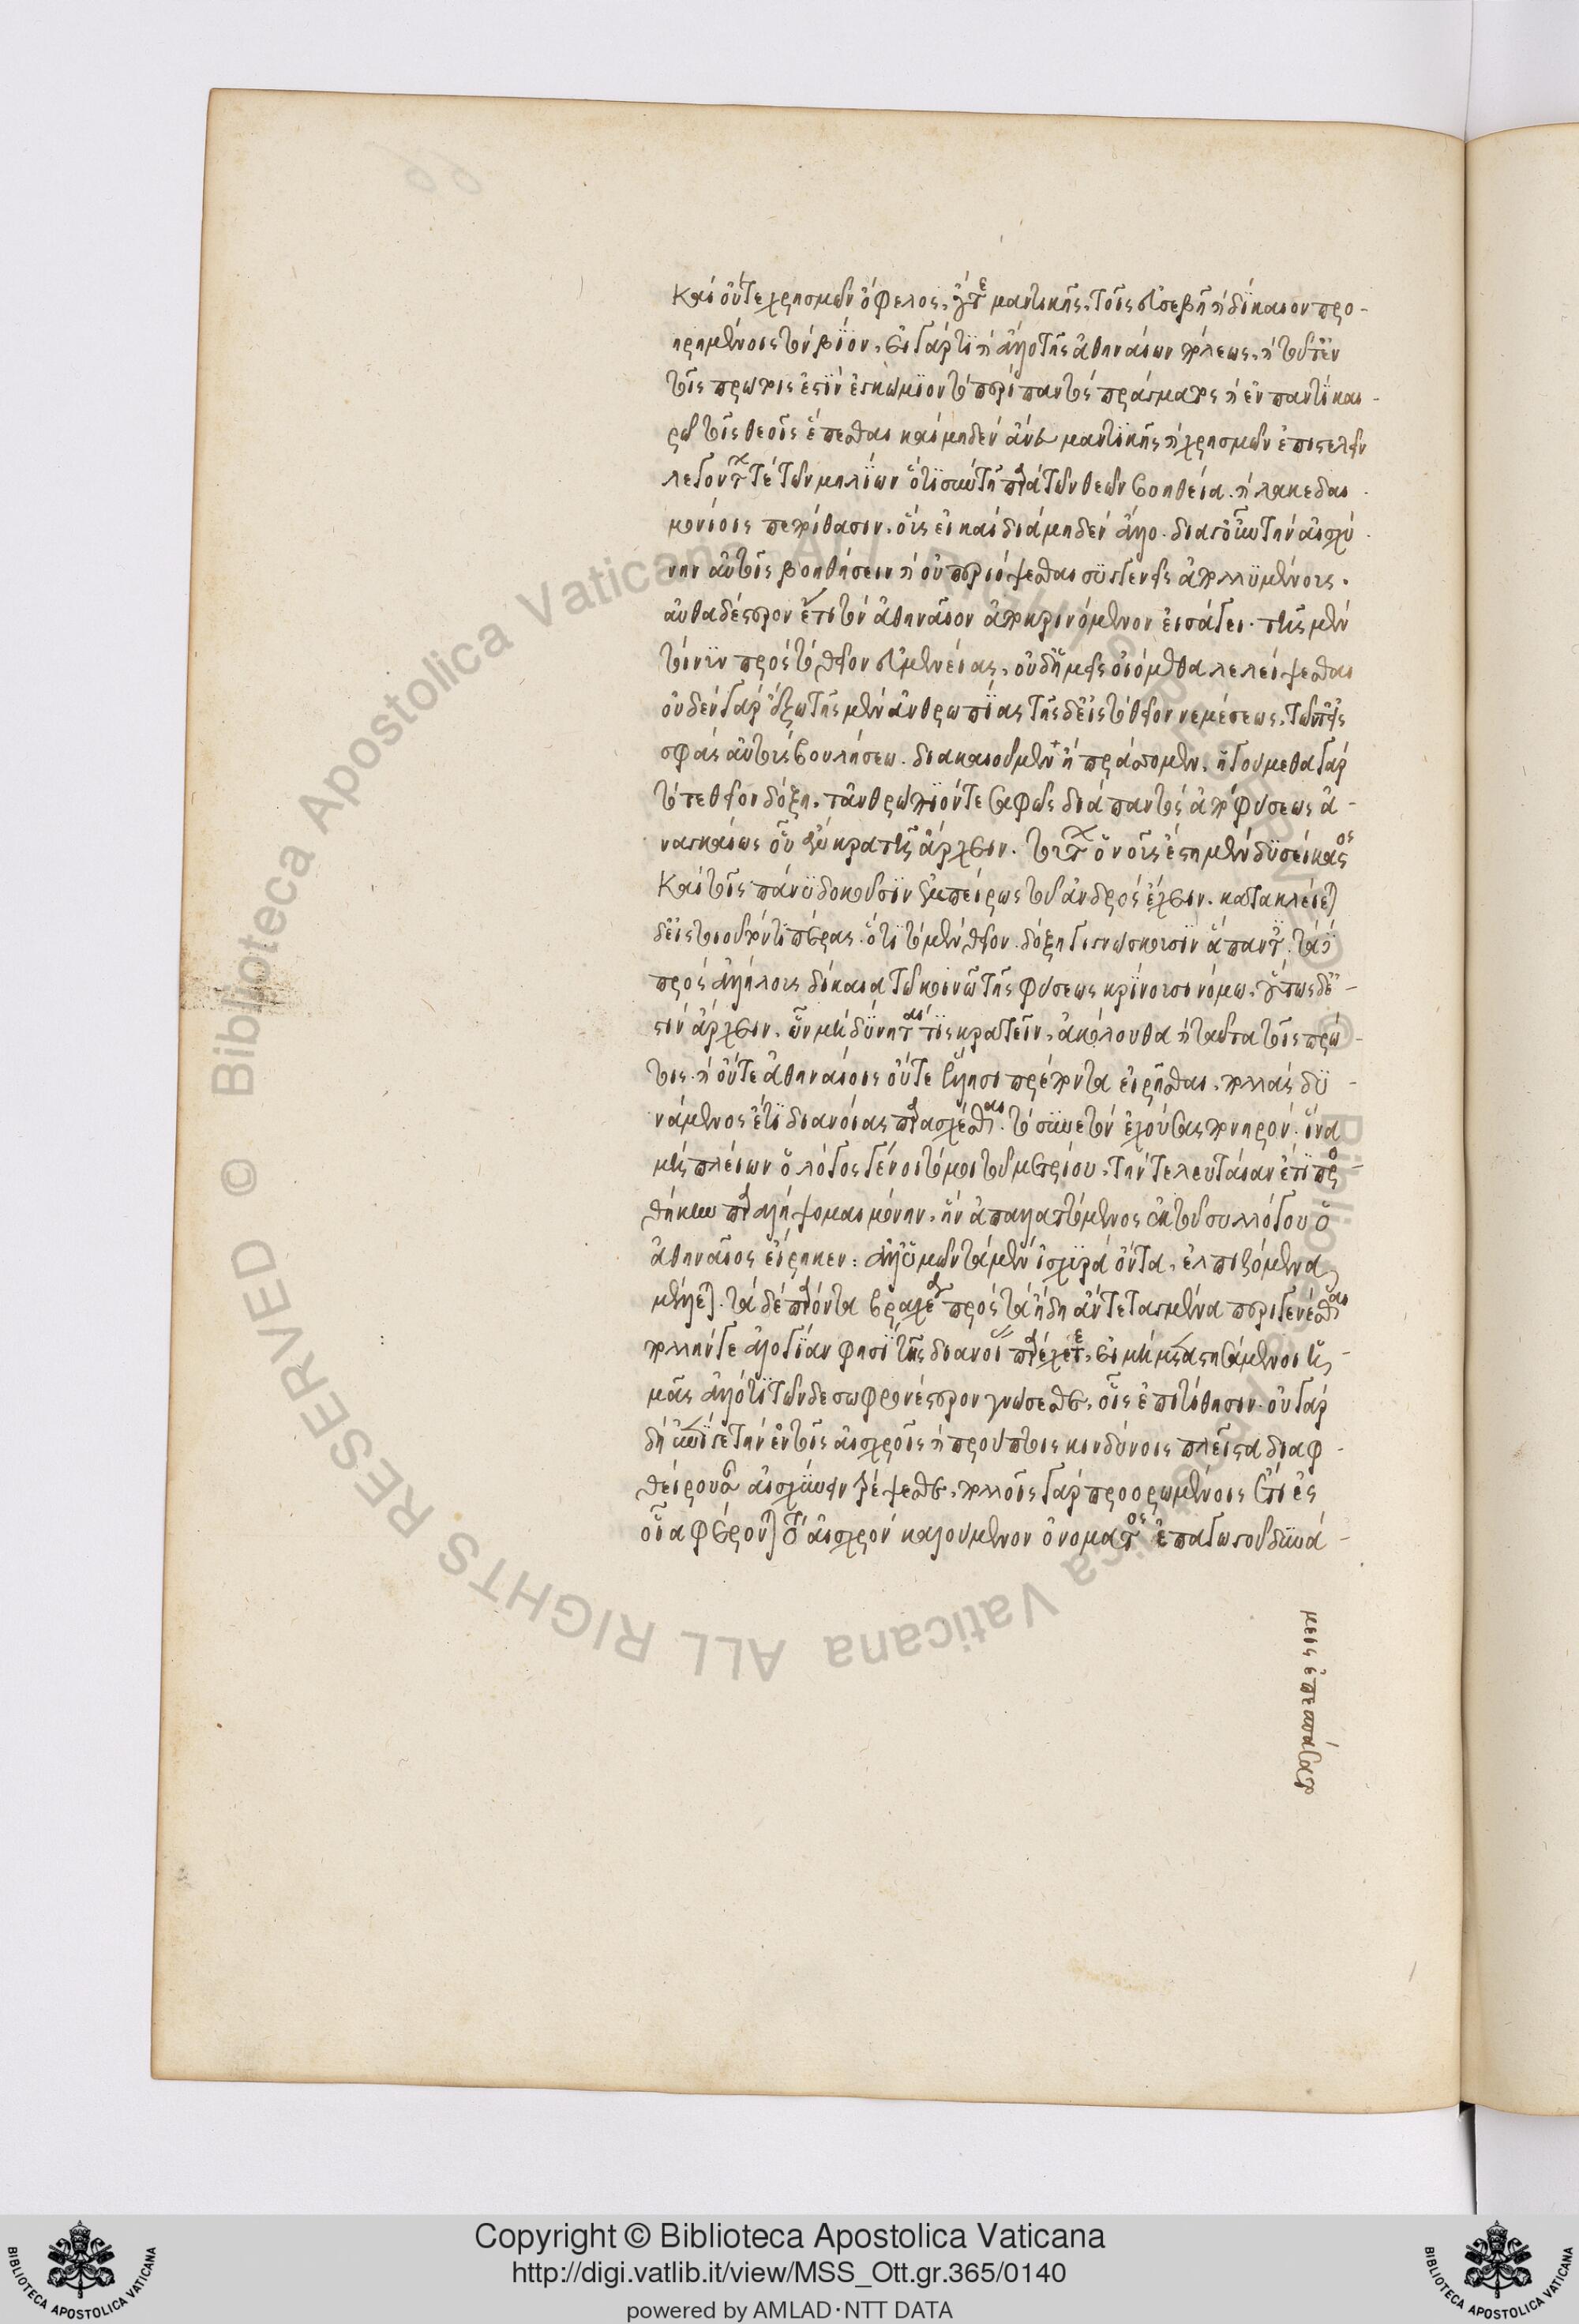 καὶ οὔτε χρησμῶν ὄφελος, οὔτε μαντικῆς, τοῖς εὐσεβῆ ἢ δίκαιον προ-
ηρημένοις τὸν βίον. εἰ γάρ τι ἢ ἄλλο τῆς ἀθηναίων πόλεως, ἢ τοῦτ' ἐν
τοῖς πρώτοις ἐστὶν ἐγκώμιον τὸ περὶ παντὸς πράγματος ἢ ἐν παντὶ και-
ρῷ τοῖς θεοῖς ἕπεσθαι καὶ μηδὲν ἄνευ μαντικῆς ἢ χρησμῶν ἐπιτελεῖν
λέγοντος τε τῶν μηλίων ὅτι σὺν τῇ παρὰ τῶν θεῶν βοηθείᾳ. ἢ λακεδαι-
μονίοις πεποίθασιν. οἷς εἰ καὶ διὰ μηδὲν ἄλλο. διὰ γοῦν τὴν αἰσχύ-
νην αὐτοῖς βοηθήσειν ἢ οὐ περιόψεσθαι συγγενεῖς ἀπολλυμένους.
αὐθαδέστερον ἔτι τὸν ἀθηναῖον ἀποκρινόμενον εἰσάγει. τῆς μὲν
τοίνυν πρὸς τὸ θεῖον εὐμενείας, οὐδ' ἡμεῖς οἰόμεθα λελείψεσθαι
οὐδὲν γὰρ ἔξω τῆς μὲν ἀνθρωπίας τῆς δ' εἰς τὸ θεῖον νεμέσεως, τῶν δ' εἰς
σφᾶς αὐτοὺς βουλήσεων. δικαιοῦμεν ἢ πράττομεν. ἡγούμεθα γὰρ
τό τε θεῖον δόξῃ, τἀνθρώπιόν τε σαφῶς διὰ παντὸς ἀπὸ φύσεως ἀ-
ναγκαίως οὗ ἂν κρατῇ ἄρχειν. τούτων ὁ νοῦς ἔστι μὲν δυσείκαστος
καὶ τοῖς πάνυ δοκοῦσιν ἐμπείρως τοῦ ἀνδρὸς ἔχειν. κατακλείεται
δ' εἰς τοιοῦτόν τι πέρας. ὅτι τὸ μὲν θεῖον. δόξῃ γιγνώσκουσιν ἅπαντες. τὰ δὲ
πρὸς ἀλλήλους δίκαια τῷ κοινῷ τῆς φύσεως κρίνουσι νόμῳ. οὗτος δ' ἐ-
στὶν ἄρχειν. ὧν ἂν δύνηταί τις κρατεῖν. ἀκόλουθα ἢ ταῦτα τοῖς πρώ-
τοις. ἢ οὔτε ἀθηναίοις οὔτε ἕλλησι πρέποντα εἰρῆσθαι. πολλὰς δυ-
νάμενος ἔτι διανοίας παρασχέσθαι. τὸ σύνετον ἐχούσας πονηρόν. ἵνα
μὴ πλείων ὁ λόγος γένοιτό μοι τοῦ μετρίου. τὴν τελευταίαν ἔτι προσ-
θήκην παραλήψομαι μόνην. ἣν ἀπαλλαττόμενος ἐκ τοῦ συλλόγου ὁ
ἀθηναῖος εἴρηκεν: ἀλλ' ὑμῶν τὰ μὲν ἰσχυρὰ ὄντα, ἐλπιζόμενα
μέλλεται. τὰ δὲ παρόντα βραχέα πρὸς τὰ ἤδη ἀντιτεταγμένα περιγενέσθαι
πολλήν τε ἀλογίαν φησὶ τῆς διανοίας παρέχετε. εἰ μὴ μεταστησάμενοι ἡ-
μᾶς ἄλλό τι τῶνδε σωφρονέστερον γνώσεσθε, οἷς ἐπιτίθησιν. οὐ γὰρ
δὴ ἐπί γε τὴν ἐν τοῖς αἰσχροῖς ἢ προύπτοις κινδύνοις πλεῖστα διαφ-
θείρουσαν αἰσχύνην τρέψεσθε. πολλοῖς γὰρ προορωμένοις ἔτι ἐς
οἷα φέρονται τὸ αἰσχρὸν καλούμενον ὀνόματος ἐπαγωγοῦ δυνά-
μεις ἐπεσπάσατο